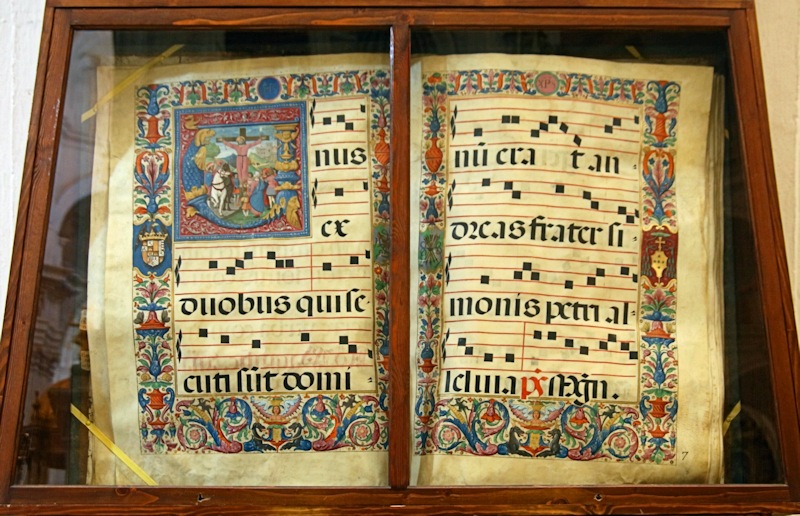 nus
ex
duobus qui se-
cuti sūt domi
nū erat an
dreas frater si
monis petri al
leluia p̄x Mgn.
7